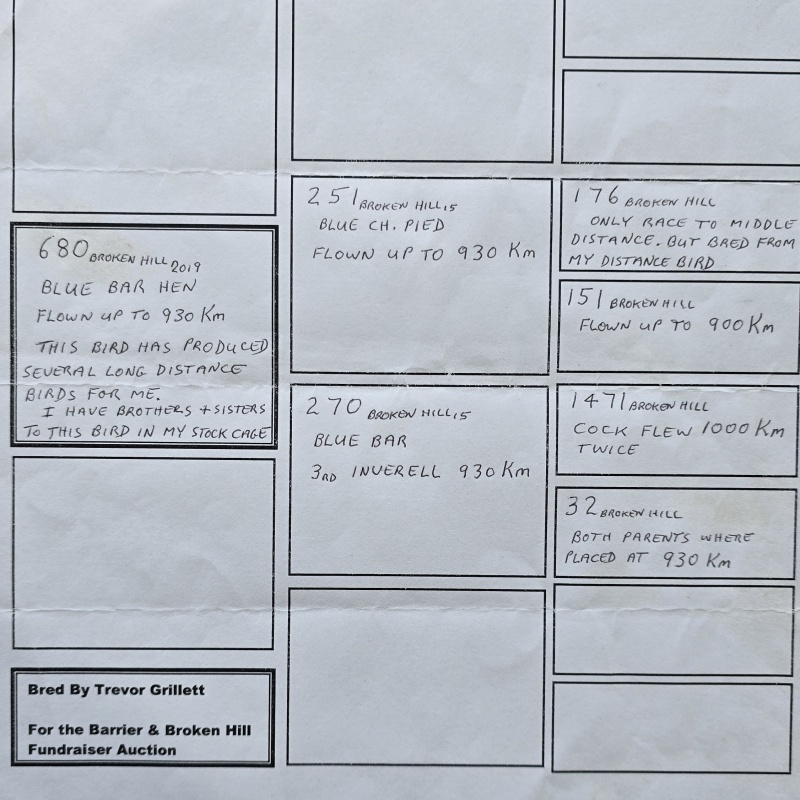 680 BROKEN HILL 2019
BLUE BAR HEN
FLOWN UP TO 930 Km
THIS BIRD HAS PRODUCED
SEVERAL LONG DISTANCE
BIRDS FOR ME.
I HAVE BROTHERS + SISTERS
TO THIS BIRD IN MY STOCK CAGE
Bred By Trevor Grillett
For the Barrier & Broken Hill
Fundraiser Auction
251 BROKEN HILL 15
BLUE CH. PIED
FLOWN UP TO 930 Km
270 BROKEN HILL 15
BLUE BAR
3RD INVERELL 930 Km
176 BROKEN HILL
ONLY RACE TO MIDDLE
DISTANCE. BUT BRED FROM
MY DISTANCE BIRD
151 BROKEN HILL
FLOWN UP TO 900 Km
1471 BROKEN HILL
COCK FLEW 1000 Km
TWICE
32 BROKEN HILL
BOTH PARENTS WHERE
PLACED AT 930 Km